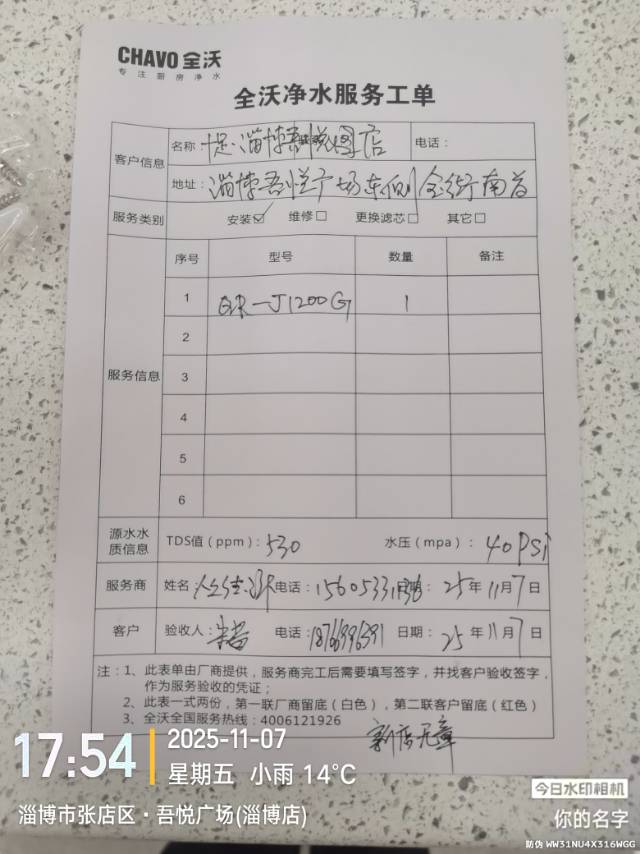 CHAVO 全沃
专注厨房净水
全沃净水服务工单
客户信息 名称 淄博 店 电话：
地址：淄博吾悦广场东侧金街南首
服务类别 安装☑ 维修□ 更换滤芯□ 其它□
服务信息 序号 型号 数量 备注
1 QR-J1200G 1
2
3
4
5
6
源水水质信息 TDS值（ppm）：530 水压（mpa）：40psi
服务商 姓名： 电话： 日期：25年11月7日
客户 验收人： 电话： 日期：25年11月7日
注：1、此表单由厂商提供，服务商完工后需要填写签字，并找客户验收签字，
作为服务验收的凭证；
2、此表一式两份，第一联厂商留底（白色），第二联客户留底（红色）
3、全沃全国服务热线：4006121926
新店无章
17:54
2025-11-07
星期五 小雨 14°C
淄博市张店区·吾悦广场(淄博店)
今日水印相机
你的名字
防伪 WW31NU4X316WGG